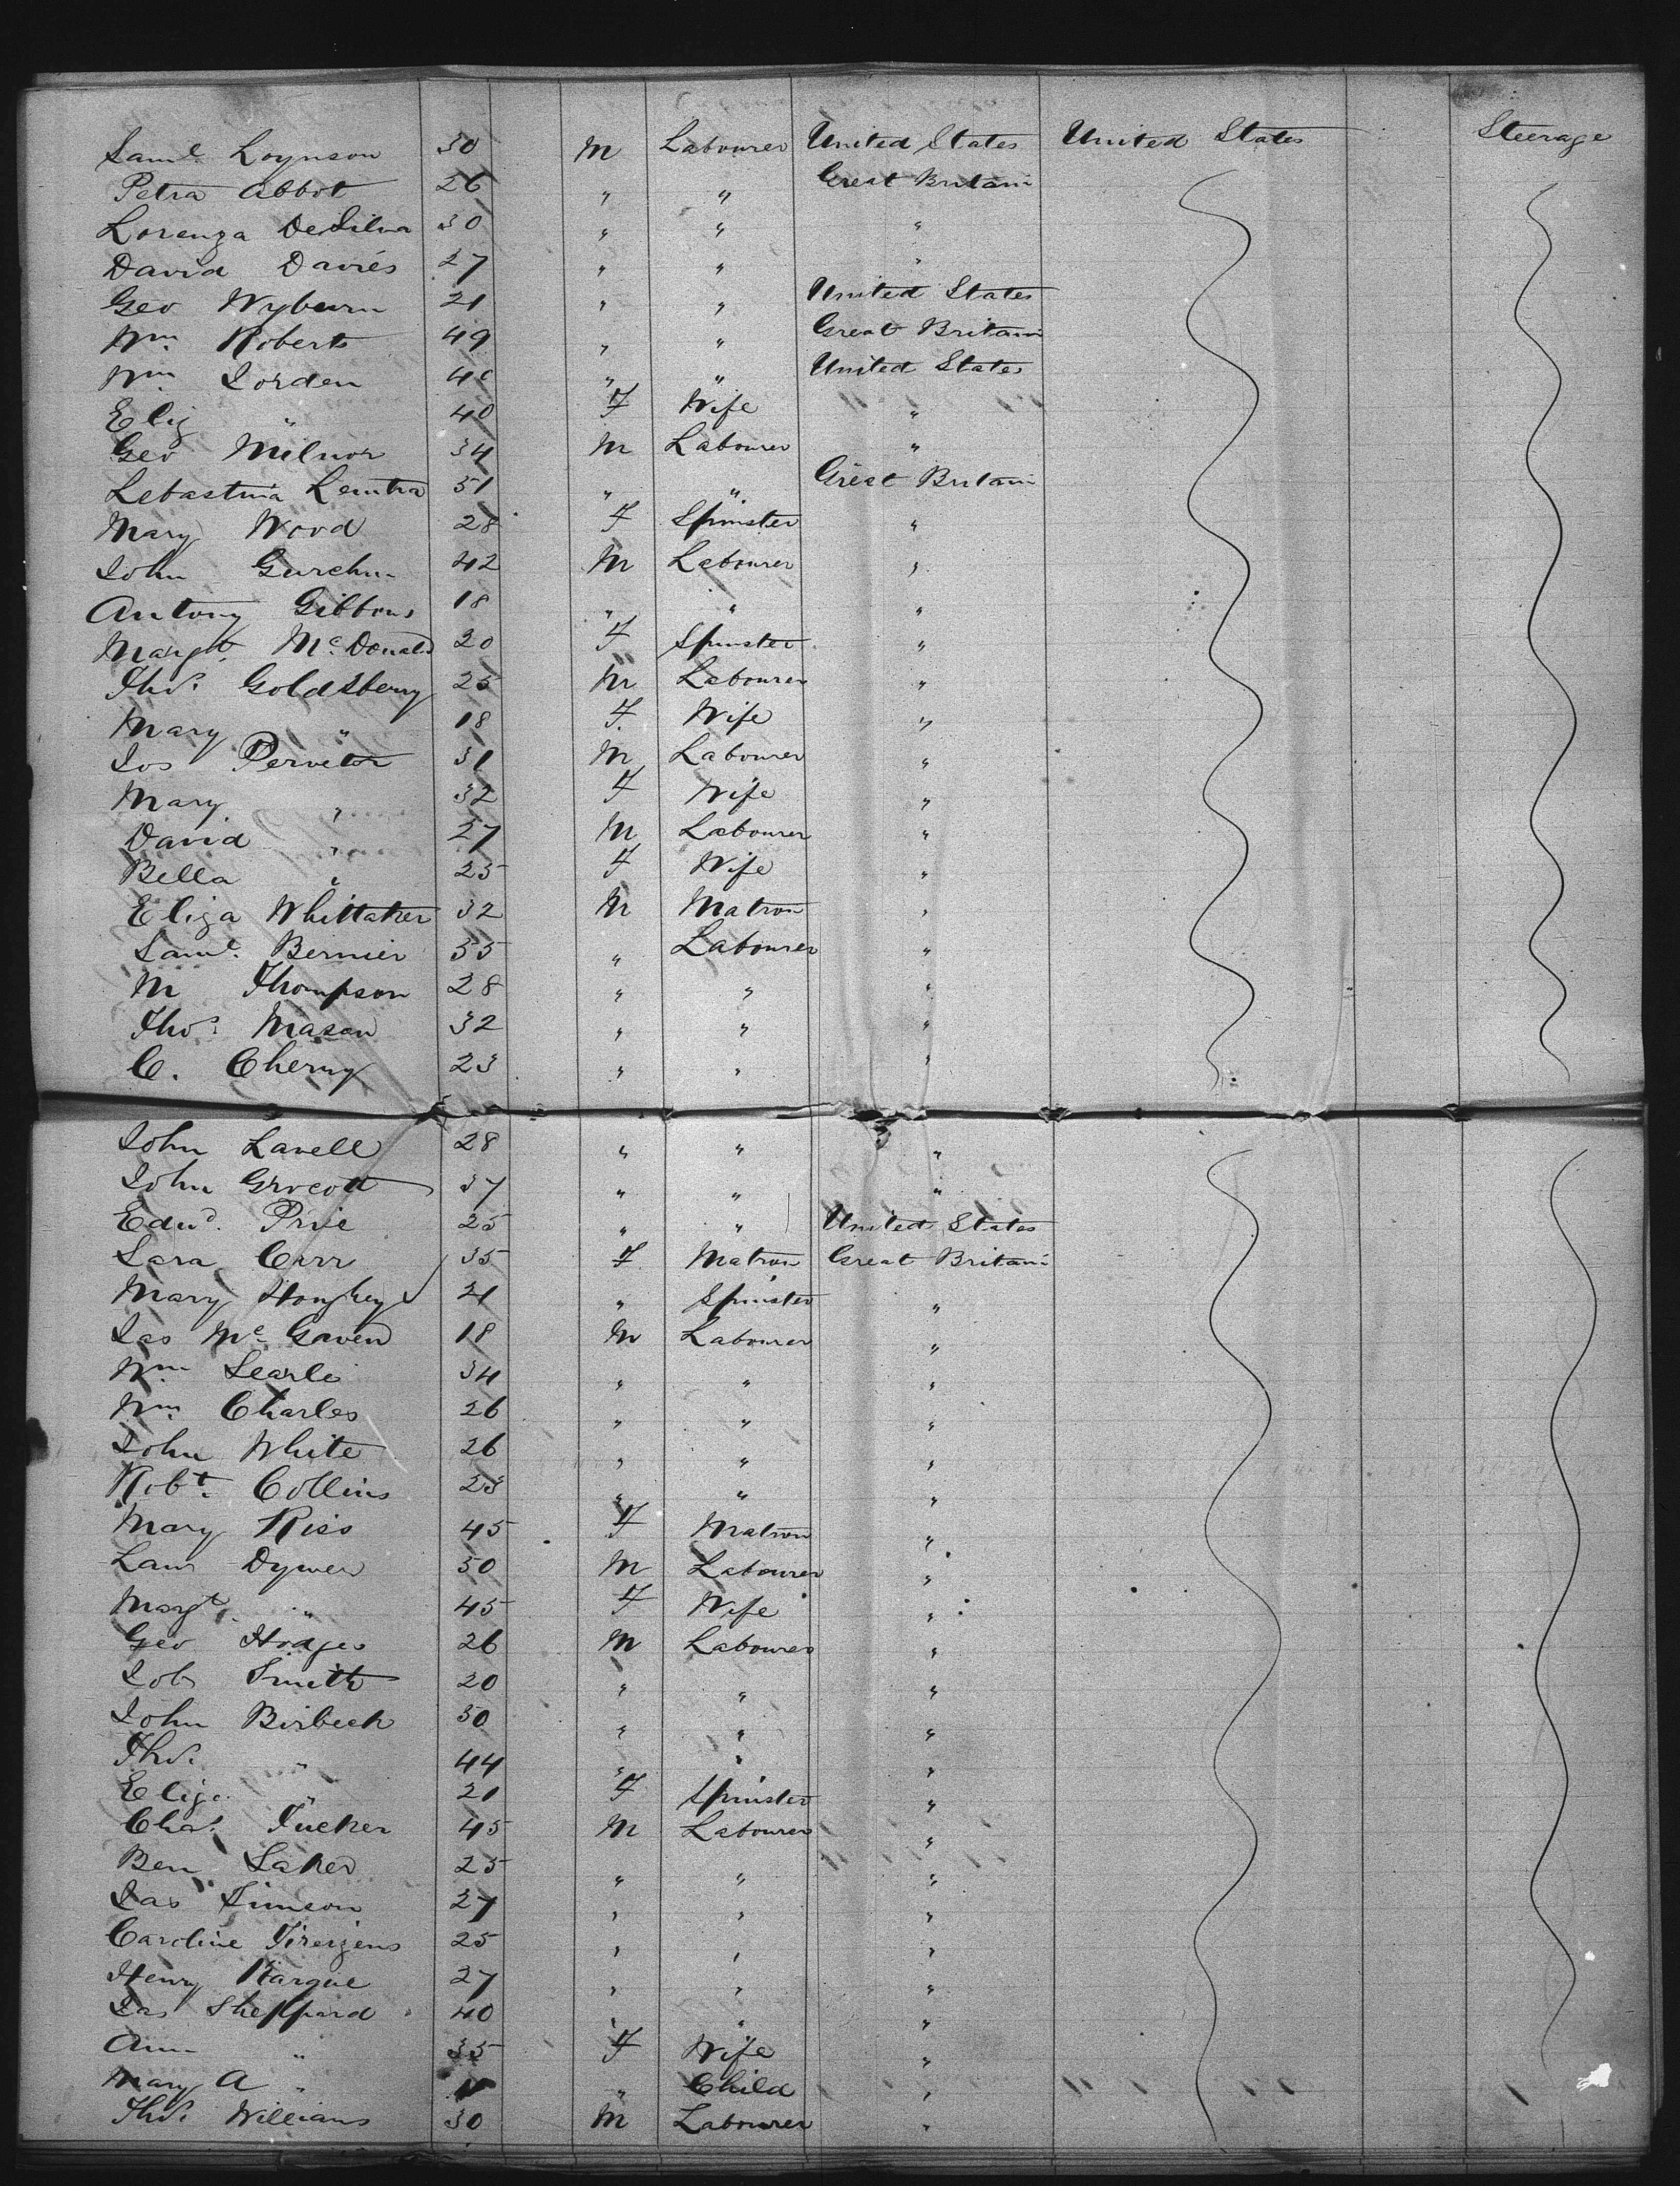 Saml Loynson 30 M Labourer United States United States Steerage
Petra Abbot 26 " " Great Britain
Lorenza DeSilva 30 " " "
David Davies 27 " " "
Geo Wyburn 21 " " United States
Wm Roberts 49 " " Great Britain
Wm Jorden 40 " " United States
Eliz " 40 F Wife "
Geo Milnor 34 M Labourer "
Sebastina 51 " " Great Britain
Mary Wood 28 F Spinster "
John 42 M Labourer "
Antony Gibbons 18 " " "
Margt McDonald 20 F Spinster "
Thos Goldsberry 25 M Labourer "
Mary " 18 F Wife "
Jos Pervetor 31 M Labourer "
Mary " 32 F Wife "
David " 27 M Labourer "
Bella " 25 F Wife "
Eliza Whittaker 32 M Matron "
Saml Bernier 35 " Labourer "
M Thompson 28 " " "
Thos Mason 32 " " "
C. Cherry 23 " " "
John Lavell 28 " " "
John Grocott 37 " " "
Edwd Price 25 " " United States
Sara Carr 35 F Matron Great Britain
Mary Honghey 21 " Spinster "
Jas McGaven 18 M Labourer "
Wm Searle 34 " " "
Wm Charles 26 " " "
John White 26 " " "
Robt Collins 23 " " "
Mary Riss 45 F Matron "
Law Dywer 50 M Labourer "
Margt " 45 F Wife "
Geo Hodges 26 M Labourer "
Job Smith 20 " " "
John Birbeck 50 " " "
Thos " 44 " " "
Eliza " 21 F Spinster "
Chas Tucker 45 M Labourer "
Ben Laker 25 " " "
Jas Simson 27 " " "
Caroline 25 " " "
Henry Hargue 27 " " "
Jas Sheppard 40 " " "
Ann " 35 F Wife "
Mary A " " Child "
Thos Williams 30 M Labourer "